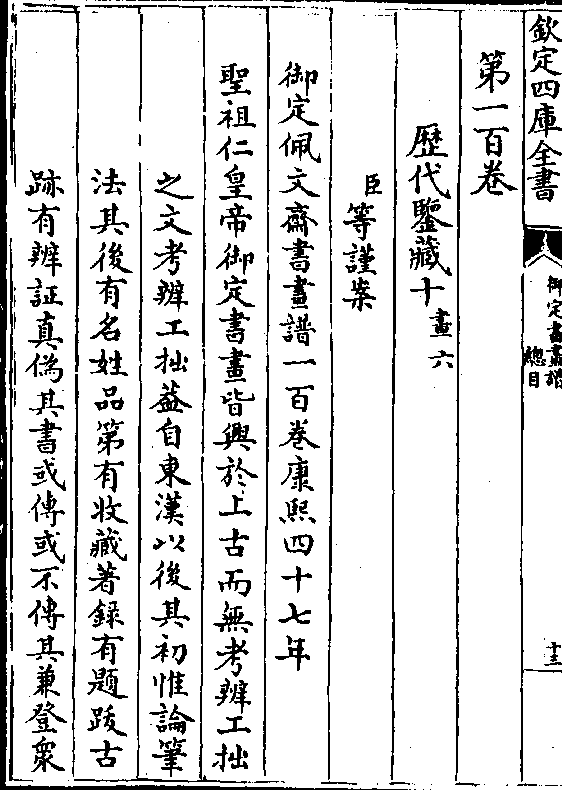 欽定四庫全書
御定書畫譜
總目
十三
第一百卷
歷代鑒藏十畫六
臣等謹案
御定佩文齋書畫譜一百卷康熙四十七年
聖祖仁皇帝御定書畫皆興於上古而無考辨工拙
之文考辨工拙葢自東漢以後其初惟論筆
法其後有名姓品第有收藏著録有題跋古
跡有辨証真偽其書或傳或不傳其兼登衆